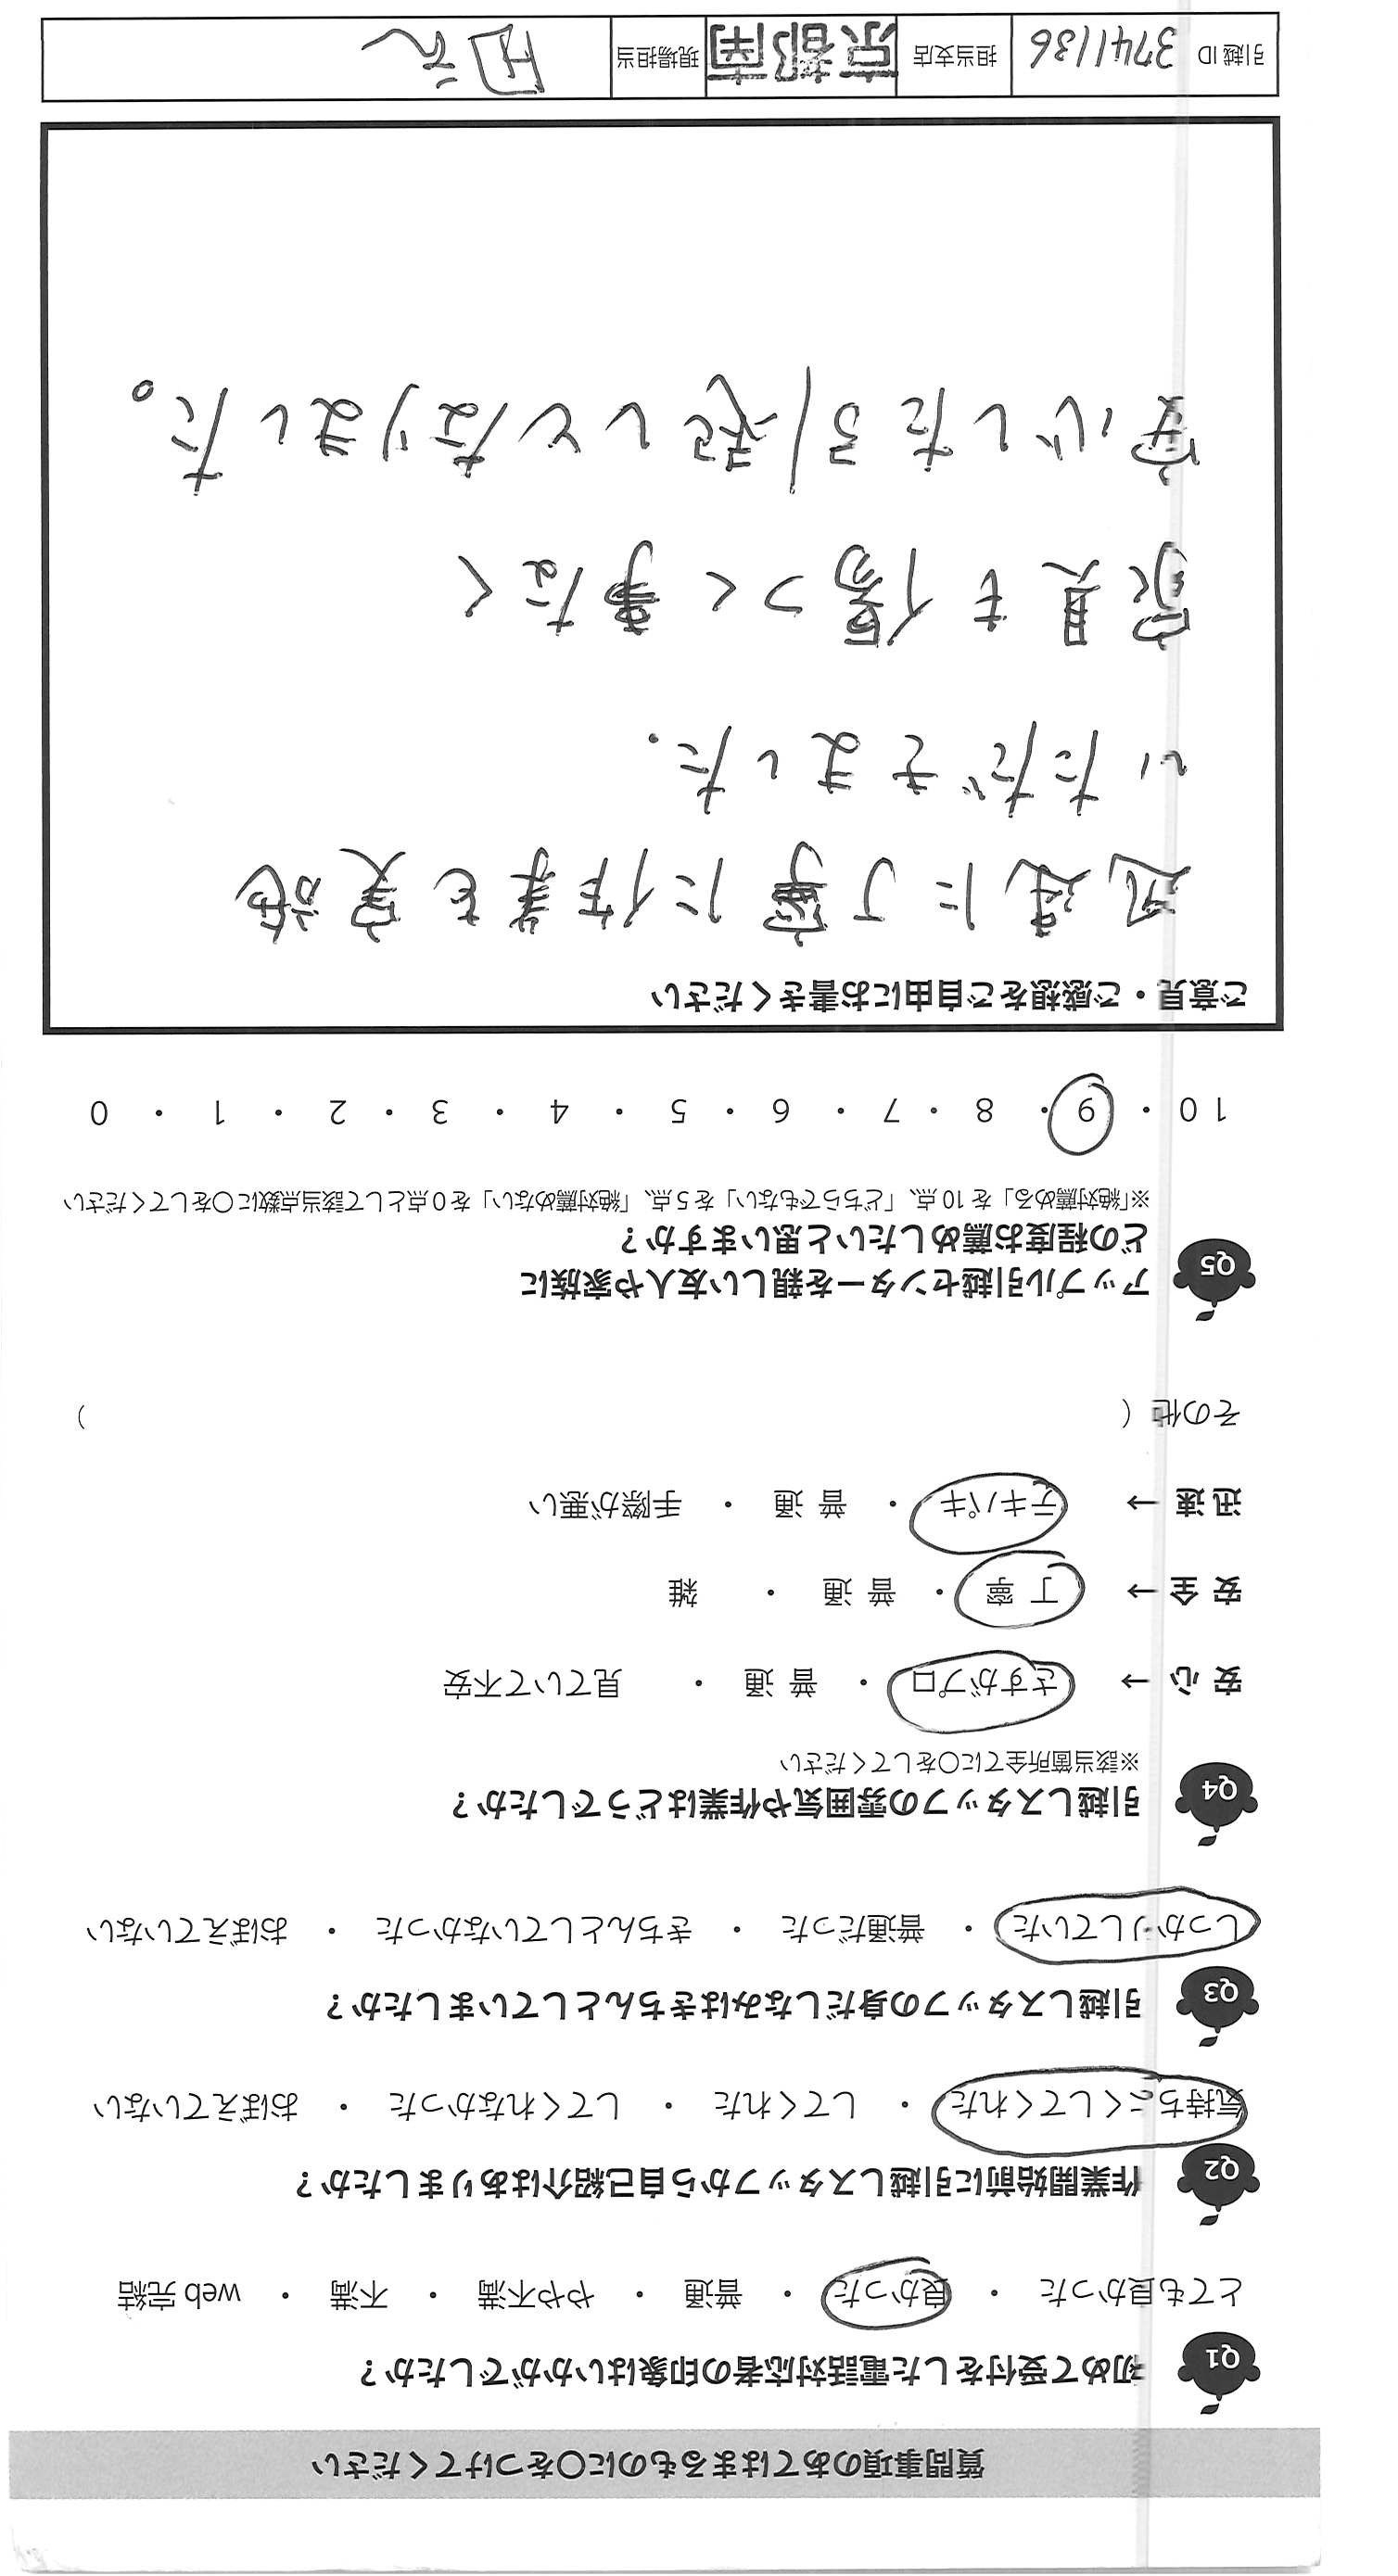 質問事項のあてはまるものに○をつけてください
Q1 初めて受付をした電話対応者の印象はいかがでしたか？
とても良かった ・ 良かった ・ 普通 ・ やや不満 ・ 不満 ・ web 完結
Q2 作業開始前に引越しスタッフから自己紹介はありましたか？
気持ちよくしてくれた ・ してくれた ・ してくれなかった ・ おぼえていない
Q3 引越しスタッフの身だしなみはきちんとしていましたか？
しっかりしていた ・ 普通だった ・ きちんとしていなかった ・ おぼえていない
Q4 引越しスタッフの雰囲気や作業はどうでしたか？
※該当箇所全てに○をしてください
安心 → さすがプロ ・ 普通 ・ 見ていて不安
安全 → 丁寧 ・ 普通 ・ 雑
迅速 → テキパキ ・ 普通 ・ 手際が悪い
その他（ ）
Q5 アップル引越センターを親しい友人や家族に
どの程度お薦めしたいと思いますか？
※「絶対薦める」を 10 点、「どちらでもない」を 5 点、「絶対薦めない」を 0 点として該当点数に○をしてください
10 ・ 9 ・ 8 ・ 7 ・ 6 ・ 5 ・ 4 ・ 3 ・ 2 ・ 1 ・ 0
ご意見・ご感想をご自由にお書きください
迅速に丁寧に作業を実施
いただきました.
家具も傷つく事なく
安心した引越しとなりました。
引越 ID 3741136 担当支店 京都南 現場担当